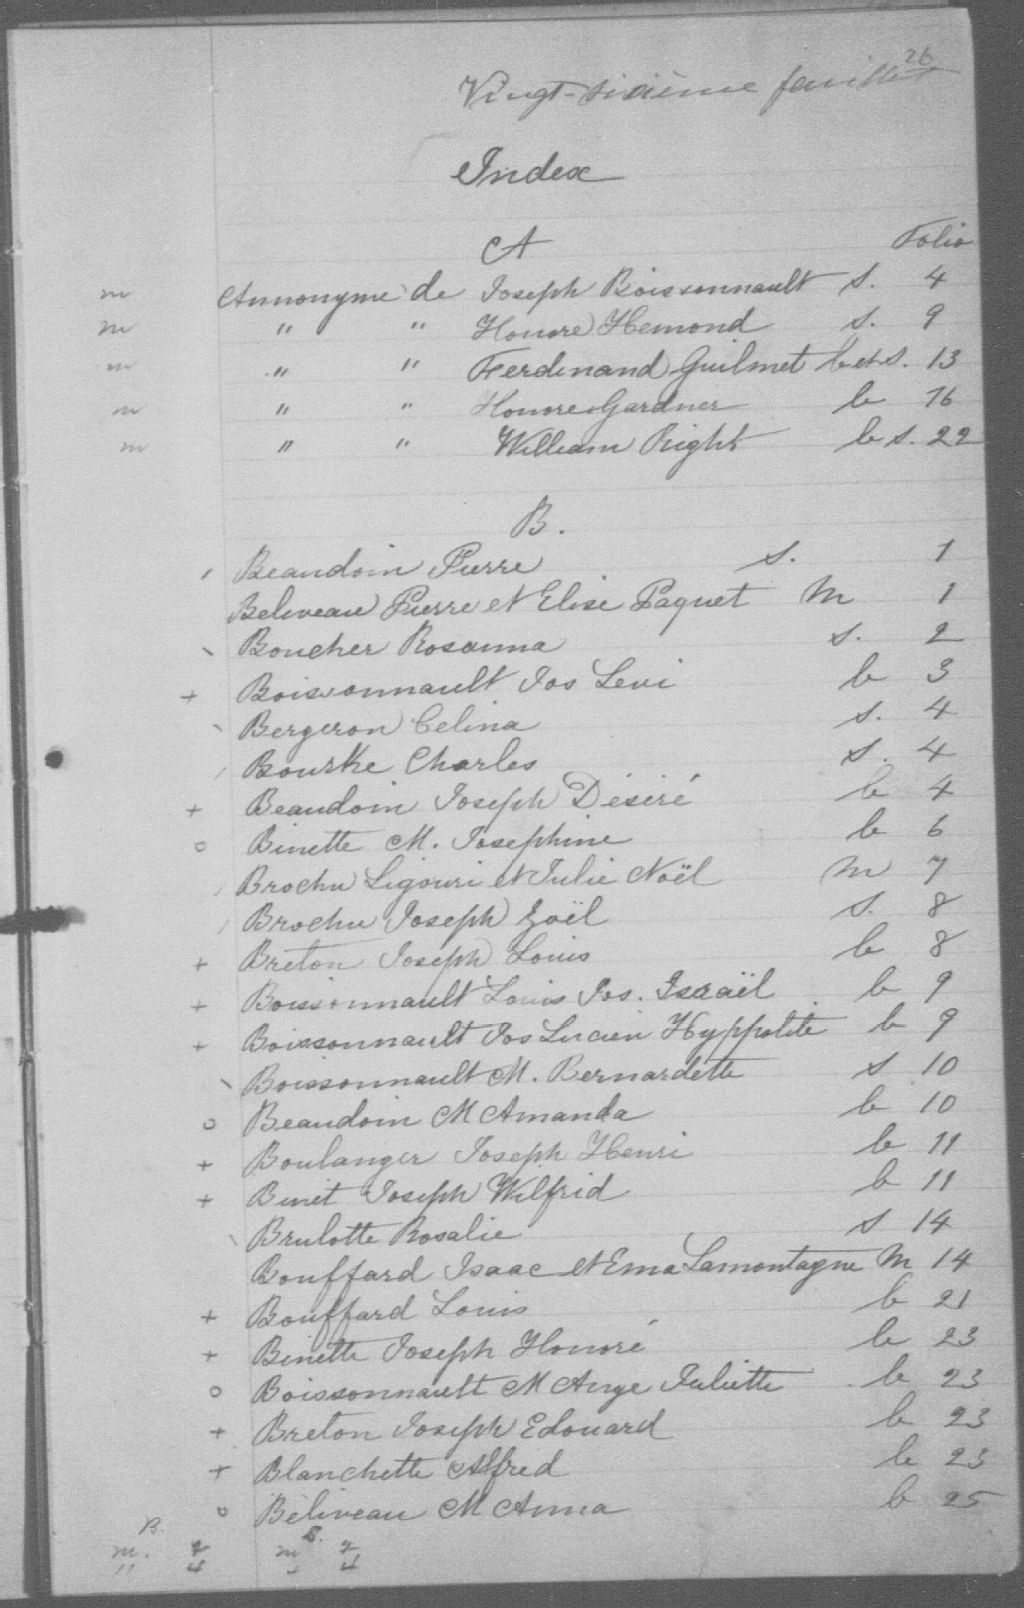 26
Vingt-sixième feuille
Index
A Folio
m Annonyme de Joseph Boissonnault S. 4
m " " Honore Hemond S. 9
m " " Ferdinand Guilmet b et S. 13
m " " Honore Gardner b 16
m " " William Right b S. 22
B.
Beaudoin Pierre S. 1
Beliveau Pierre et Elise Paquet M 1
Boucher Rosanna S. 2
+ Boissonnault Jos Levi b 3
Bergeron Celina S. 4
Bourke Charles S. 4
+ Beaudoin Joseph Désiré b 4
o Binette M. Josephine b 6
Brochu Ligouri et Julie Noël M 7
Brochu Joseph Zoël S. 8
+ Breton Joseph Louis b 8
+ Boissonnault Louis Jos. Israël b 9
+ Boissonnault Jos Lucien Hyppolite b 9
Boissonnault M. Bernardette S 10
o Beaudoin M Amanda b 10
+ Boulanger Joseph Henri b 11
+ Binet Joseph Wilfrid b 11
Brulotte Rosalie S 14
Bouffard Isaac et Ema Lamontagne M 14
+ Bouffard Louis b 21
+ Binette Joseph Honoré b 23
o Boissonnault M Ange Juliette b 23
+ Breton Joseph Edouard b 23
+ Blanchette Alfred b 23
o Béliveau M Anna b 25
B. S.
m. m
" 4 4